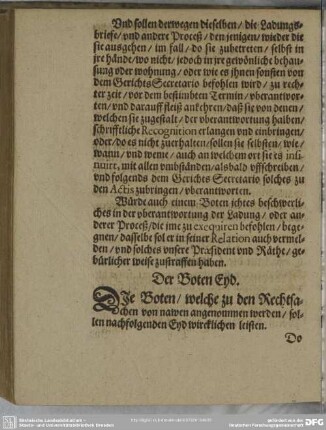 Vnd sollen derwegen dieselben / die Ladungs-
briefe / vnd andere Proceß / den jenigen / wieder die
sie ausgehen / im fall / do sie zubetreten / selbst in
jre hände / wo nicht / jedoch in jre gewönliche behau-
sung oder wohnung / oder wie es jhnen sonsten von
dem Gerichts Secretario befohlen wird / zu rech-
ter zeit / vor dem bestimbten Termin / vberantwor-
ten / vnd darauff fleiß ankehren / daß sie von denen /
welchen sie zugestalt / der vberantwortung halben /
schrifftliche Recognition erlangen vnd einbringen /
oder / do es nicht zuerhalten / sollen sie selbsten / wie /
wann / vnd weme / auch an welchem ort sie es insi-
nuirt, mit allen vmbständen / alsbald vffschreiben /
vnd folgends dem Gerichts Secretario solches zu
den Actis zubringen / vberantworten.
Würde auch einem Boten jchtes beschwerli-
ches in der vberantwortung der Ladung / oder an-
derer Proceß / die jme zu exequiren befohlen / bege-
gnen / dasselbe sol er in seiner Relation auch vermel-
den / vnd solches vnsere Præsident vnd Räthe / ge-
bürlicher weise zustraffen haben.
Der Boten Eyd.
DIe Boten / welche zu den Rechtsa-
chen von nawen angenommen werden / sol-
len nachfolgenden Eyd wircklichen leisten.
Do